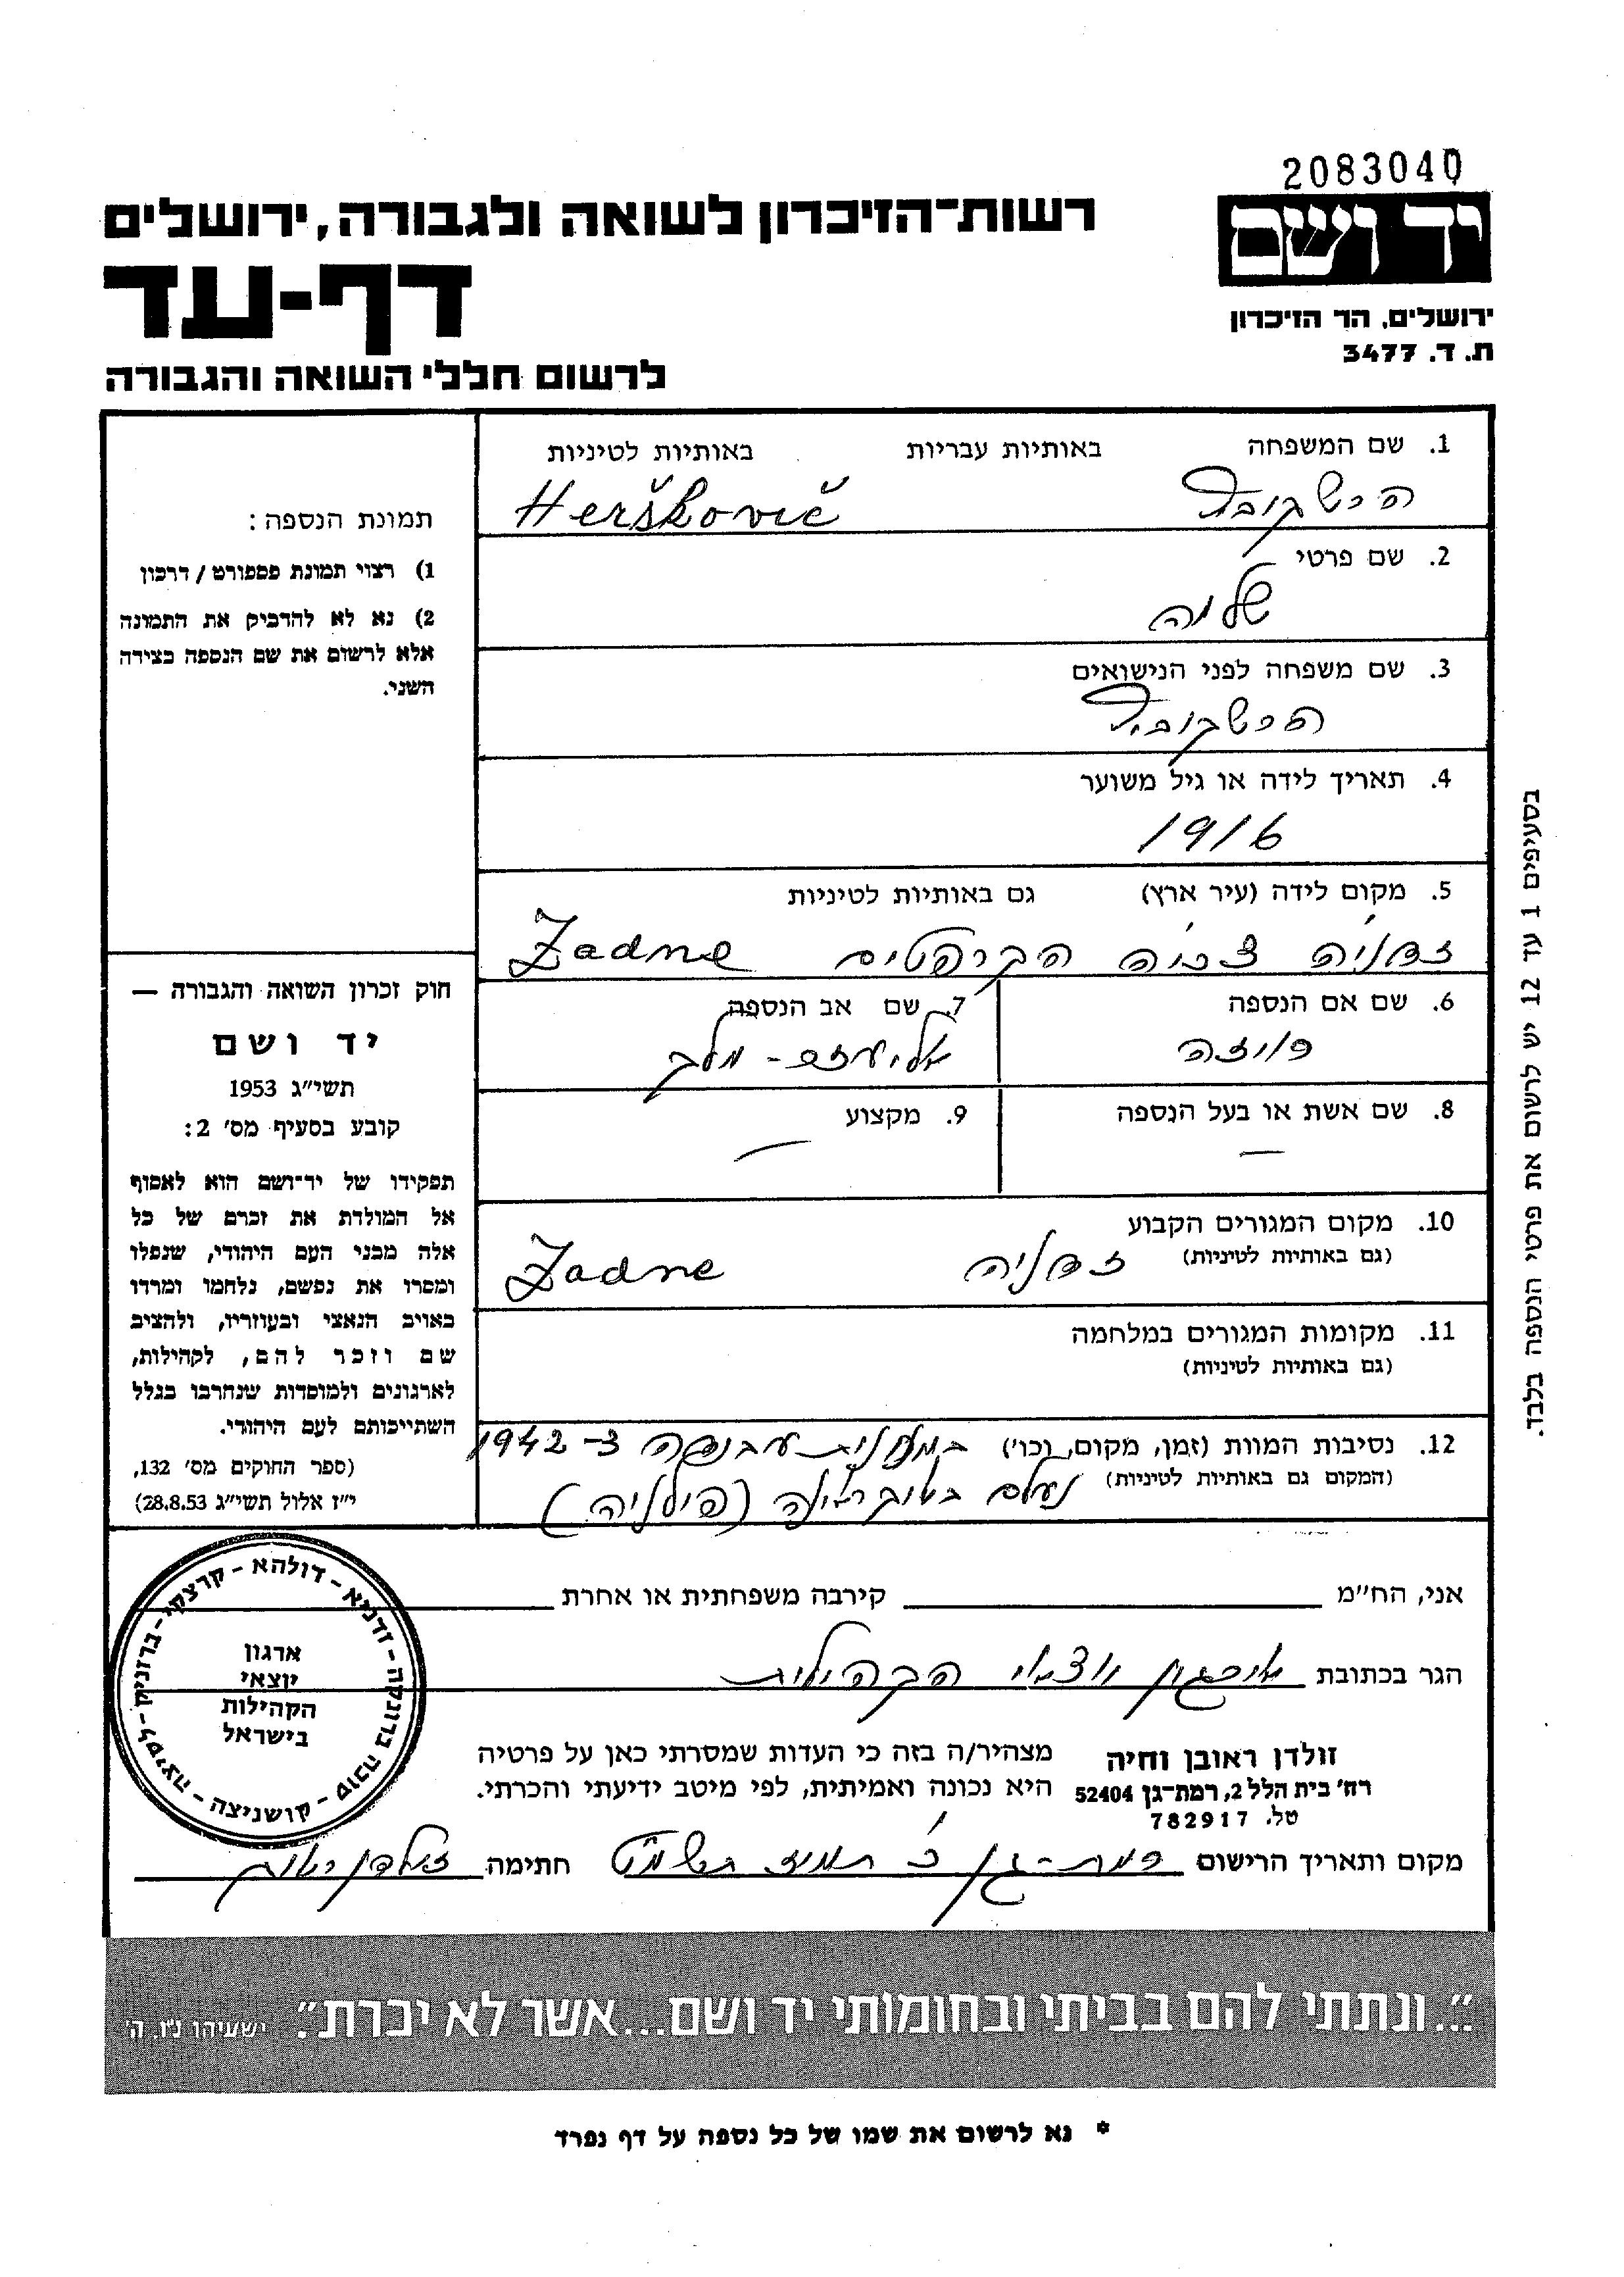 2083040
יד ושם
רשות־הזיכרון לשואה ולגבורה, ירושלים
דף-עד
ירושלים, הר הזיכרון
ת. ד. 3477
לרשום חללי השואה והגבורה
1. שם המשפחה באותיות עבריות באותיות לטיניות
הרשקוביץ Herškovič
2. שם פרטי
שלמה
3. שם משפחה לפני הנישואים
הרשקוביץ
4. תאריך לידה או גיל משוער
1916
5. מקום לידה (עיר ארץ) גם באותיות לטיניות
זדניה צ'כיה הקרפטים Zadne
6. שם אם הנספה 7. שם אב הנספה
רוזה
אליעזר - מלך
8. שם אשת או בעל הנספה 9. מקצוע
— —
10. מקום המגורים הקבוע
(גם באותיות לטיניות)
זדניה Zadne
11. מקומות המגורים במלחמה
(גם באותיות לטיניות)
12. נסיבות המוות (זמן, מקום, וכו') במחנות עבודה ב-1942
(המקום גם באותיות לטיניות) נעלם באוקראינה
תמונת הנספה:
1) רצוי תמונת פספורט / דרכון
2) נא לא להדביק את התמונה
אלא לרשום את שם הנספה בצידה
השני.
חוק זכרון השואה והגבורה —
יד ושם
תשי״ג 1953
קובע בסעיף מס' 2:
תפקידו של יד־ושם הוא לאסוף
אל המולדת את זכרם של כל
אלה מבני העם היהודי, שנפלו
ומסרו את נפשם, נלחמו ומרדו
באויב הנאצי ובעוזריו, ולהציב
שם וזכר להם, לקהילות,
לארגונים ולמוסדות שנחרבו בגלל
השתייכותם לעם היהודי.
(ספר החוקים מס' 132,
י״ז אלול תשי״ג 28.8.53)
בסעיפים 1 עד 12 יש לרשום את פרטי הנספה בלבד.
אני, הח״מ קירבה משפחתית או אחרת
הגר בכתובת ארגון יוצאי הקהילות
זולדן ראובן וחיה
רח' בית הלל 2, רמת-גן 52404
טל. 782917
מצהיר/ה בזה כי העדות שמסרתי כאן על פרטיה
היא נכונה ואמיתית, לפי מיטב ידיעתי והכרתי.
מקום ותאריך הרישום רמת-גן כ' תמוז תשמ"ט חתימה זולדן ראובן
דולהא - קרצקי - ברזניק - לטיצה - קושניצה - סוכה ברונקה - זדניא
ארגון
יוצאי
הקהילות
בישראל
"...ונתתי להם בביתי ובחומותי יד ושם...אשר לא יכרת". ישעיהו נ״ו, ה'
* נא לרשום את שמו של כל נספה על דף נפרד